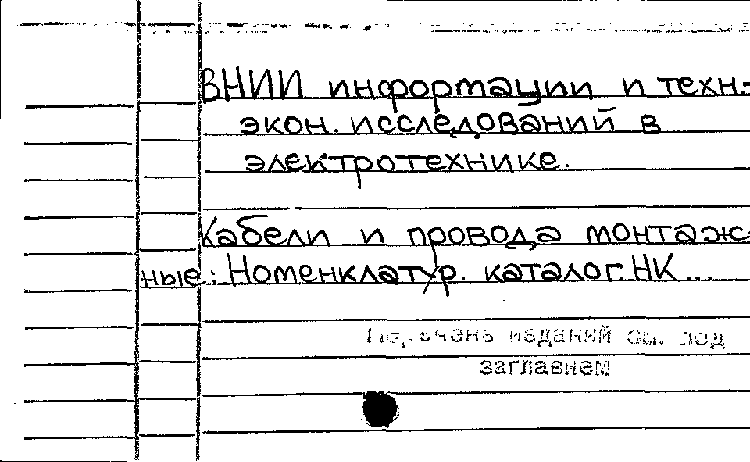 ВНИИ информации и техн.-
экон. исследований в
электротехнике.
Кабели и провода монтаж-
ные: Номенклатур. каталог. НК ...
Перечень изданий см. под
заглавием